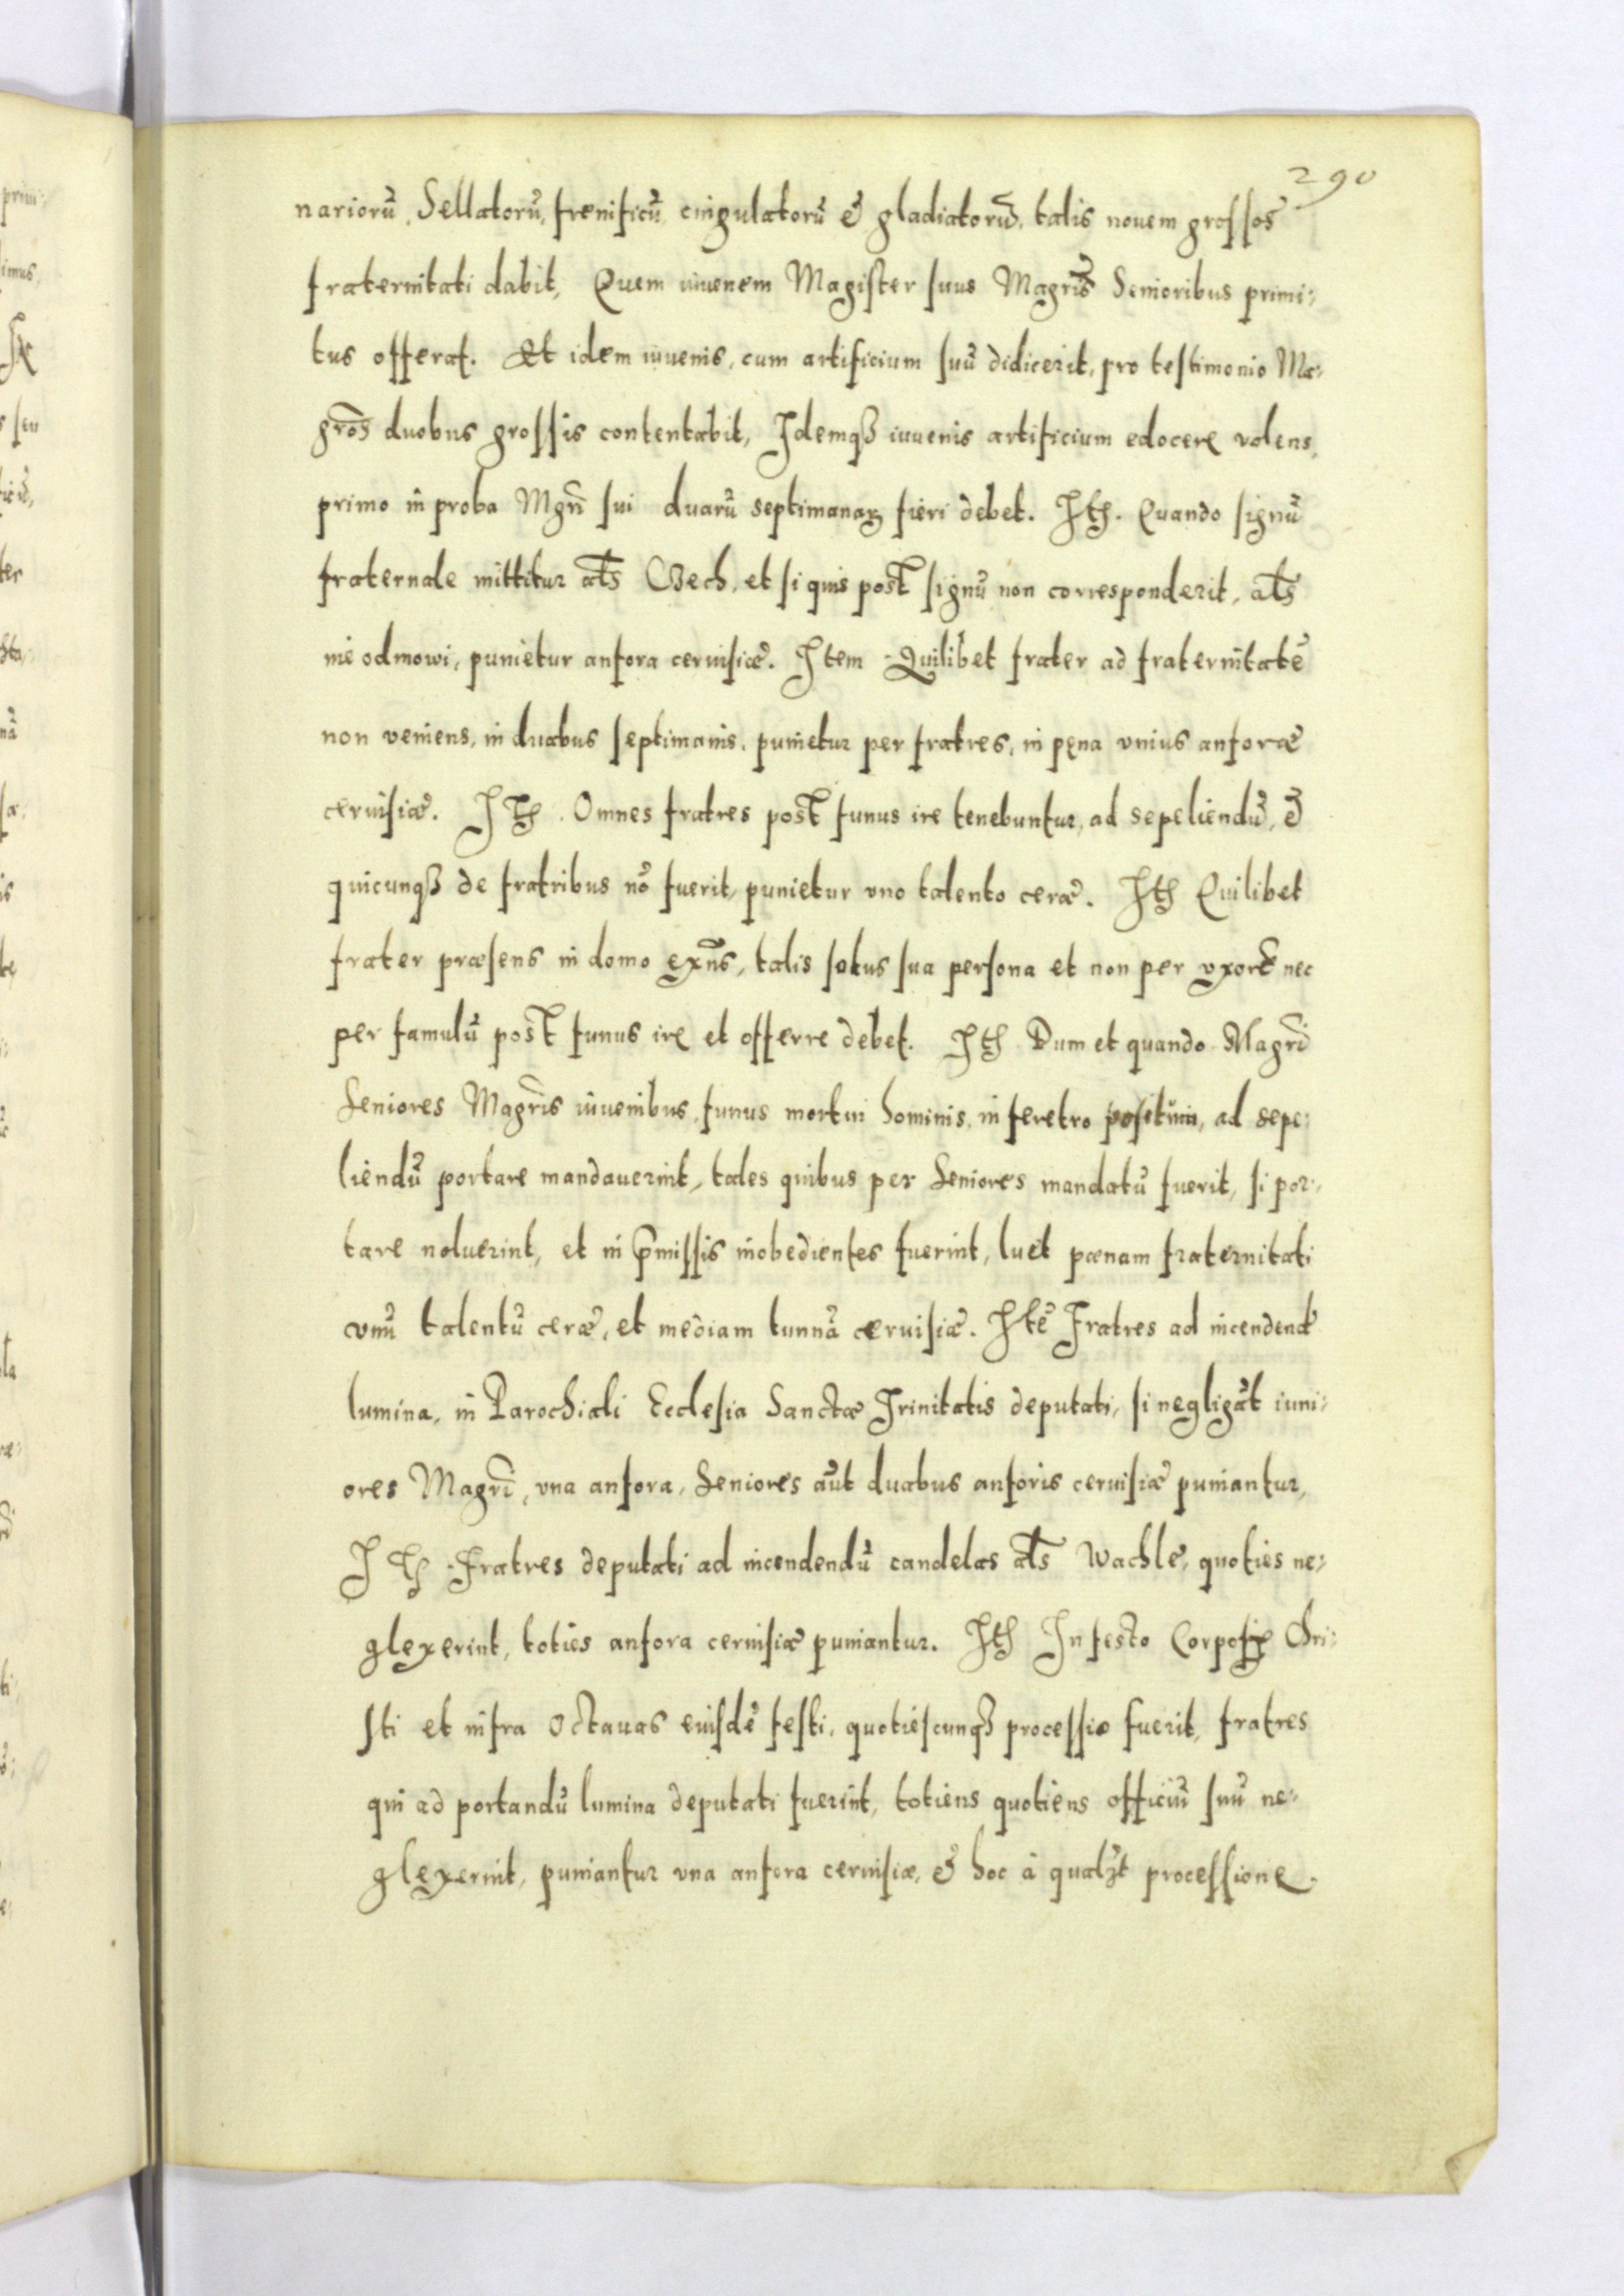 290
nariorū, Sellatorū, frenificū cingulatorū & gladiatorū, talis nouem grossos
fraternitati dabit, Quem iuuenem Magister suus Magrīs Senioribus primi:
tus offerat. Et idem iuuenis, cum artificium suū didicerit, pro testimonio Ma:
grōs duobus grossis contentabit, Idemqȝ iuuenis artificium edocere volens,
primo in proba Mgrī sui duarū septimanaꝝ fieri debet. Itꝫ. Quando signū
fraternale mittitur als Czech, et si quis post signū non corresponderit, als
nie odmowi, punietur anfora ceruisiæ. Item Quilibet frater ad fraternitatē
non veniens, in duabus septimanis, punietur per fratres, in pęna vnius anforæ
ceruisiæ. Itꝫ. Omnes fratres post funus ire tenebuntur, ad sepeliendū, &
quicunqȝ de fratribus nō fuerit, punietur vno talento ceræ. Itꝫ Quilibet
frater præsens in domo exñs, talis solus sua persona et non per vxorē nec
per famulū post funus ire et offerre debet. Itꝫ Dum et quando Magrī
Seniores Magrīs iuuenibus, funus mortui hominis, in feretro positum, ad sepe:
liendū portare mandauerint, tales quibus per Seniores mandatū fuerit, si por:
tare noluerint, et in p̄missis inobedientes fuerint, luet pœnam fraternitati
vnū talentū ceræ, et mediam tunnā ceruisiæ. Itē Fratres ad incendend
lumina, in Parochiali Ecclesia Sanctæ Trinitatis deputati, si negligāt iuni:
ores Magrī, vna anfora, Seniores aūt duabus anforis ceruisiæ puniantur,
Itꝫ. Fratres deputati ad incendendū candelas als Wachle, quoties ne:
glexerint, toties anfora ceruisiæ puniantur. Itꝫ In festo Corporis Chri:
sti et infra octauas eiusdē festi, quotiescunqȝ processio fuerit, fratres
qui ad portandū lumina deputati fuerint, totiens quotiens officiū suū ne:
glexerint, puniantur vna anfora ceruisiæ, & hoc à qualꝫt processione.